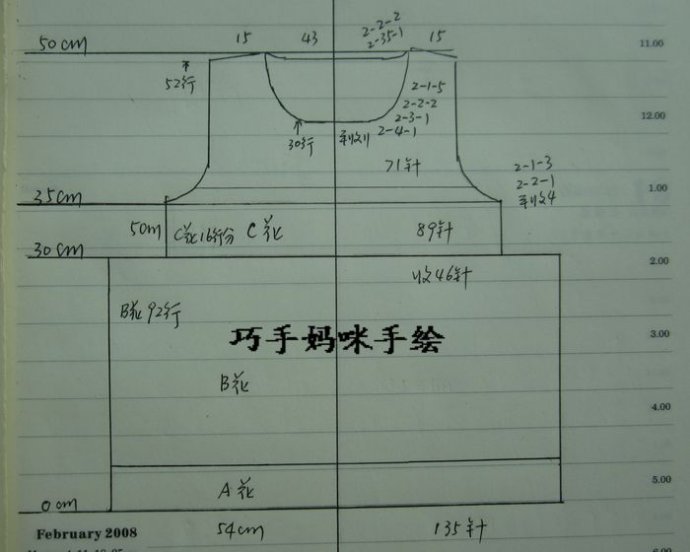 50cm
15 43 2-2-2 15
2-35-1
11.00
52行
2-1-5
2-2-2
2-3-1
2-4-1
12.00
30行
平收11
71针
2-1-3
2-2-1
平收4
35cm
1.00
50m C花16行分 C花 89针
30cm
2.00
收46针
B花92行
巧手妈咪手绘
3.00
B花
4.00
A花
5.00
0cm
February 2008
54cm 135针
6.00